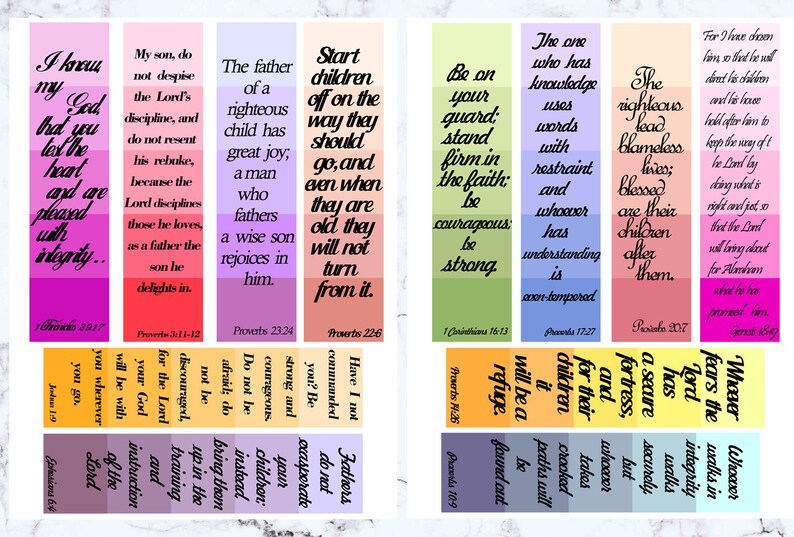 I know,
my
God,
that you
test the
heart
and are
pleased
with
integrity...
1 Chronicles 29:17
My son, do
not despise
the Lord's
discipline, and
do not resent
his rebuke,
because the
Lord disciplines
those he loves,
as a father the
son he
delights in.
Proverbs 3:11-12
The father
of a
righteous
child has
great joy;
a man
who
fathers
a wise son
rejoices in
him.
Proverbs 23:24
Start
children
off on the
way they
should
go, and
even when
they are
old they
will not
turn
from it.
Proverbs 22:6
Have I not
commanded
you? Be
strong and
courageous.
Do not be
afraid; do
not be
discouraged,
for the Lord
your God
will be with
you wherever
you go.
Joshua 1:9
Fathers
do not
exasperate
your
children;
instead
bring them
up in the
training
and
instruction
of the
Lord.
Ephesians 6:4
Be on
your
guard;
stand
firm in
the faith;
be
courageous;
be
strong.
1 Corinthians 16:13
The one
who has
knowledge
uses
words
with
restraint,
and
whoever
has
understanding
is
even-tempered
Proverbs 17:27
The
righteous
lead
blameless
lives;
blessed
are their
children
after
them.
Proverbs 20:7
For I have chosen
him, so that he will
direct his children
and his house
hold after him to
keep the way of t
he Lord by
doing what is
right and just, so
that the Lord
will bring about
for Abraham
what he has
promised him.
Genesis 18:19
Whoever
fears the
Lord
has
a secure
fortress,
and
for their
children
it
will be a
refuge.
Proverbs 14:26
Whoever
walks in
integrity
walks
securely,
but
whoever
takes
crooked
paths will
be
found out
Proverbs 10:9